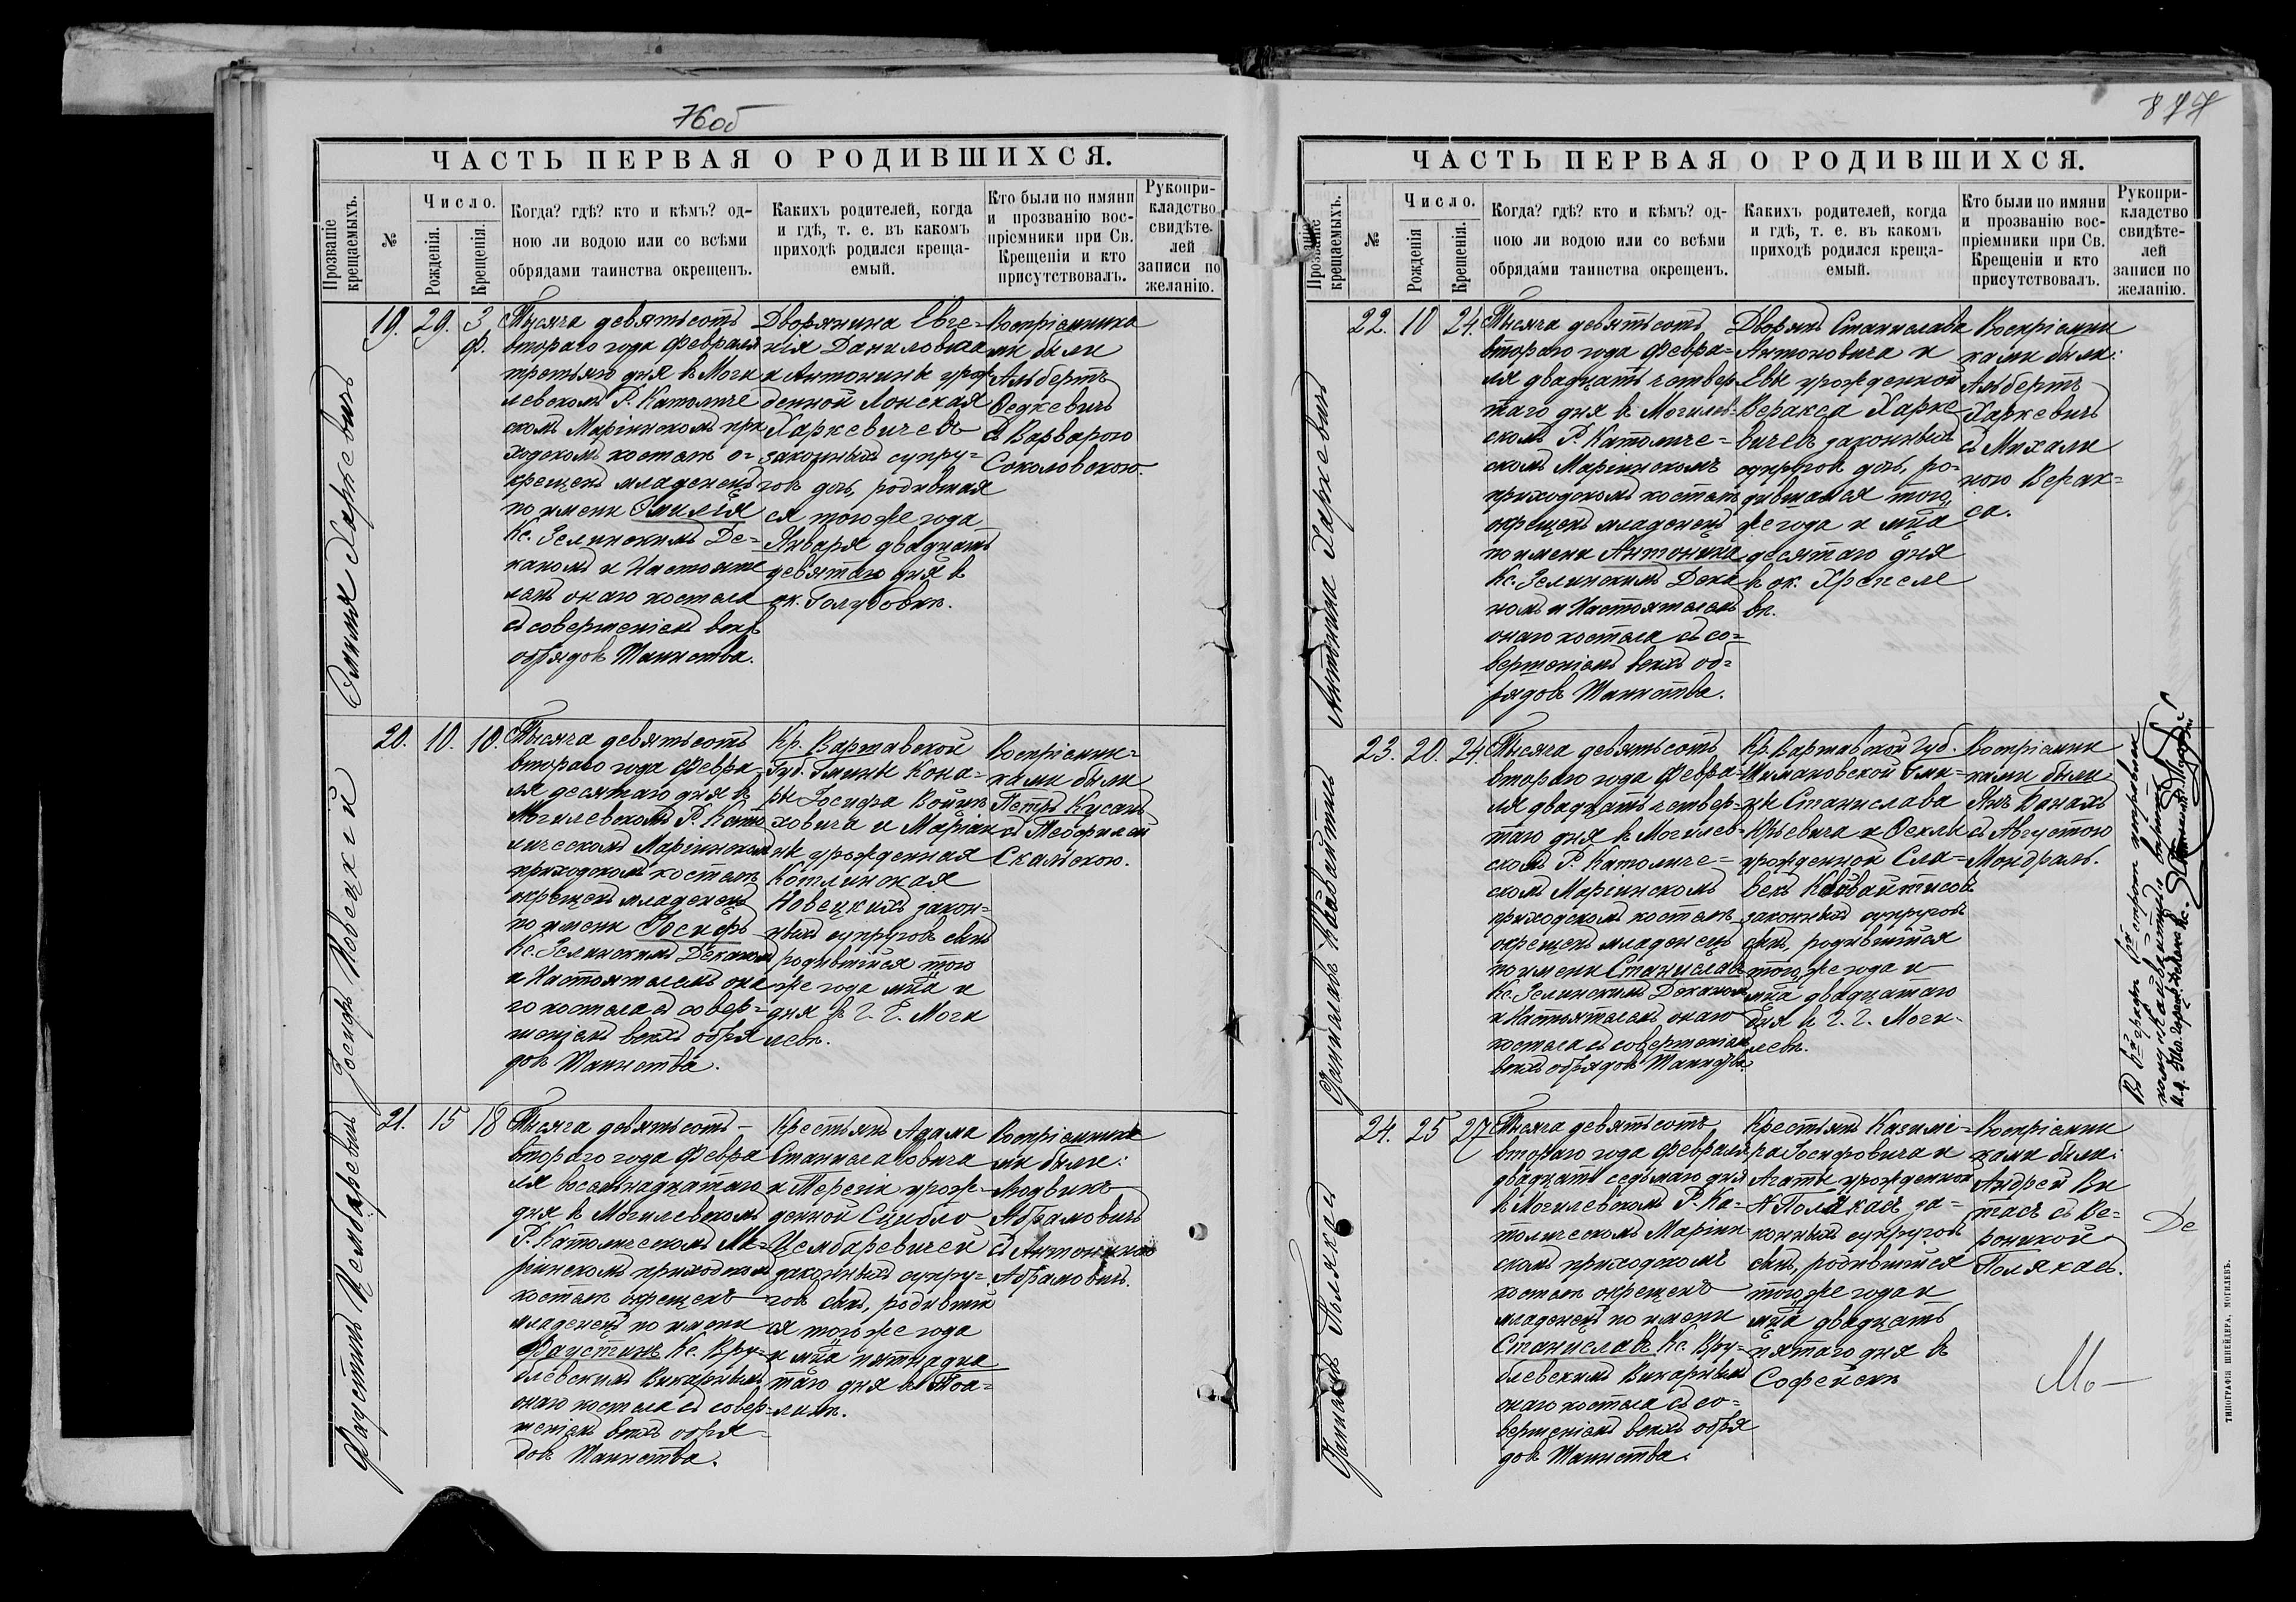 76об
ЧАСТЬ ПЕРВАЯ О РОДИВШИХСЯ.
Прозваніе крещаемыхъ.
№
Число.
Рожденія.
Крещенія.
Когда? гдѣ? кто и кѣмъ? од-
ною ли водою или со всѣми
обрядами таинства окрещенъ.
Какихъ родителей, когда
и гдѣ, т. е. въ какомъ
приходѣ родился креща-
емый.
Кто были по имяни
и прозванію вос-
пріемники при Св.
Крещеніи и кто
присутствовалъ.
Рукопри-
кладство
свидѣте-
лей
записи по
желанію.
Эмилія Харкевичъ
19.
29.
3
ф.
Тысяча девятьсотъ
втораго года Февраля
третьяго дня въ Моги
левскомъ Р. Католиче
скомъ Маріинскомъ при
ходскомъ костелѣ о-
крещенъ младенецъ
по имени Эмилія
Кс. Зелинскимъ Де-
каномъ и Настояте
лемъ онаго костела
съ совершеніемъ всѣхъ
обрядовъ Таинства.
Дворянина Евге-
нія Данилович
и Антонины урож
денной Лонская
Харкевичевъ
законныхъ супру-
говъ дочь, родившая
ся того же года
Января двадцать
девятаго дня въ
ок. Голубовкѣ.
Воспріемника
ми были
Альбертъ
Федкевичъ
съ Варварою
Соколовскою.
Іосифъ Новецкій
20.
10.
10.
Тысяча девятьсотъ
втораго года Февра
ля десятаго дня въ
Могилевскомъ Р. Като
лическомъ Маріинскомъ
приходскомъ костелѣ
окрещенъ младенецъ
по имени Іосифъ
Кс. Зелинскимъ Деканомъ
и Настоятелемъ она
го костела съ совер-
шеніемъ всѣхъ обря
довъ Таинства.
Кр. Варшавской
Губ. Гмины Кона-
ры Іосифа Войцѣ
ховича и Маріан
ны урожденная
Котлинская
Новецкихъ закон-
ныхъ супруговъ сынъ
родившійся того
же года мца и
дня въ Г. Г. Моги
левѣ.
Воспріемни-
ками были
Петръ Кусакъ
съ Теофилей
Скальскою.
Фаустинъ Цембаревичъ
21.
15
18
Тысяча девятьсотъ
втораго года Февра
ля восемнадцатаго
дня въ Могилевскомъ
Р. Католическомъ Ма-
ріинскомъ приходскомъ
костелѣ окрещенъ
младенецъ по имени
Фаустинъ Кс. Вру-
блевскимъ Викарнымъ
онаго костела съ совер-
шеніемъ всѣхъ обря
довъ Таинства.
Крестьянъ Адама
Станиславовича
и Терезы урож-
денной Сцибло
Цембаревичей
законныхъ супру-
говъ сынъ, родивший
ся того же года
и мца пятнадца
таго дня въ
Воспріемника
ми были:
Людвикъ
Абрамовичъ
съ Антониною
Абрамовичъ.
877
ЧАСТЬ ПЕРВАЯ О РОДИВШИХСЯ.
Прозваніе крещаемыхъ.
№
Число.
Рожденія
Крещенія.
Когда? гдѣ? кто и кѣмъ? од-
ною ли водою или со всѣми
обрядами таинства окрещенъ.
Какихъ родителей, когда
и гдѣ, т. е. въ какомъ
приходѣ родился креща-
емый.
Кто были по имяни
и прозванію вос-
пріемники при Св.
Крещеніи и кто
присутствовалъ.
Рукопри-
кладство
свидѣте-
лей
записи по
желанію.
Антонина Харкевичъ
22.
10
24.
Тысяча девятьсотъ
втораго года Февра-
ля двадцать четвер
таго дня въ Могилев-
скомъ Р. Католиче-
скомъ Маріинскомъ
приходскомъ костелѣ
окрещенъ младенецъ
по имени Антонина
Кс. Зелинскимъ Дека
номъ и Настоятелемъ
онаго костела съ со-
вершеніемъ всѣхъ об-
рядовъ Таинства.
Дворянъ Станислава
Антоновича и
Евы урожденной
Веракса Харке
вичевъ законныхъ
супруговъ дочь, ро-
дившаяся того
же года и мца
десятаго дня
въ ок.
Воспріемни
ками были:
Альбертъ
Харкевичъ
съ Михали
ною Верак-
са.
23.
20.
24.
Тысяча девятьсотъ
втораго года Февра-
ля двадцать четвер-
таго дня въ Могилев-
скомъ Р. Католиче-
скомъ Маріинскомъ
приходскомъ костелѣ
окрещенъ младенецъ
по имени Станиславъ
Кс. Зелинскимъ Деканомъ
и Настоятелемъ онаго
костела съ совершеніемъ
всѣхъ обрядовъ Таинства
Кр. Варшавской Губ.
Шимановской Гми-
ны Станислава
и Феклы
урожденной Сла-
бекъ
законныхъ супруговъ
сынъ, родившійся
того же года и
мца двадцатаго
дня въ Г. Г. Моги-
левѣ.
Воспріемни
ками были
Янъ Банахъ
съ Августою
Мондраль.
Станиславъ Полякасъ
24.
25
27
Тысяча девятьсотъ
втораго года Февраля
двадцать седьмаго дня
въ Могилевскомъ Р. Ка-
толическомъ Маріин
скомъ приходскомъ
костелѣ окрещенъ
младенецъ по имени
Станиславъ Кс. Вру-
блевскимъ Викарнымъ
онаго костела съ со-
вершеніемъ всѣхъ обря
довъ Таинства.
Крестьянъ Казимі-
ра Іосифовича и
Агаты урожденной
Полякасъ за-
конныхъ супруговъ
сынъ, родившійся
того же года и
мца двадцать
пятаго дня въ
Софейскѣ
Воспріемни
ками были:
Андрей Ви
тасъ съ Ве-
роникой
Полякасъ.
Де
Мо
ТИПОГРАФІЯ ШНЕЙДЕРА, МОГИЛЕВЪ.